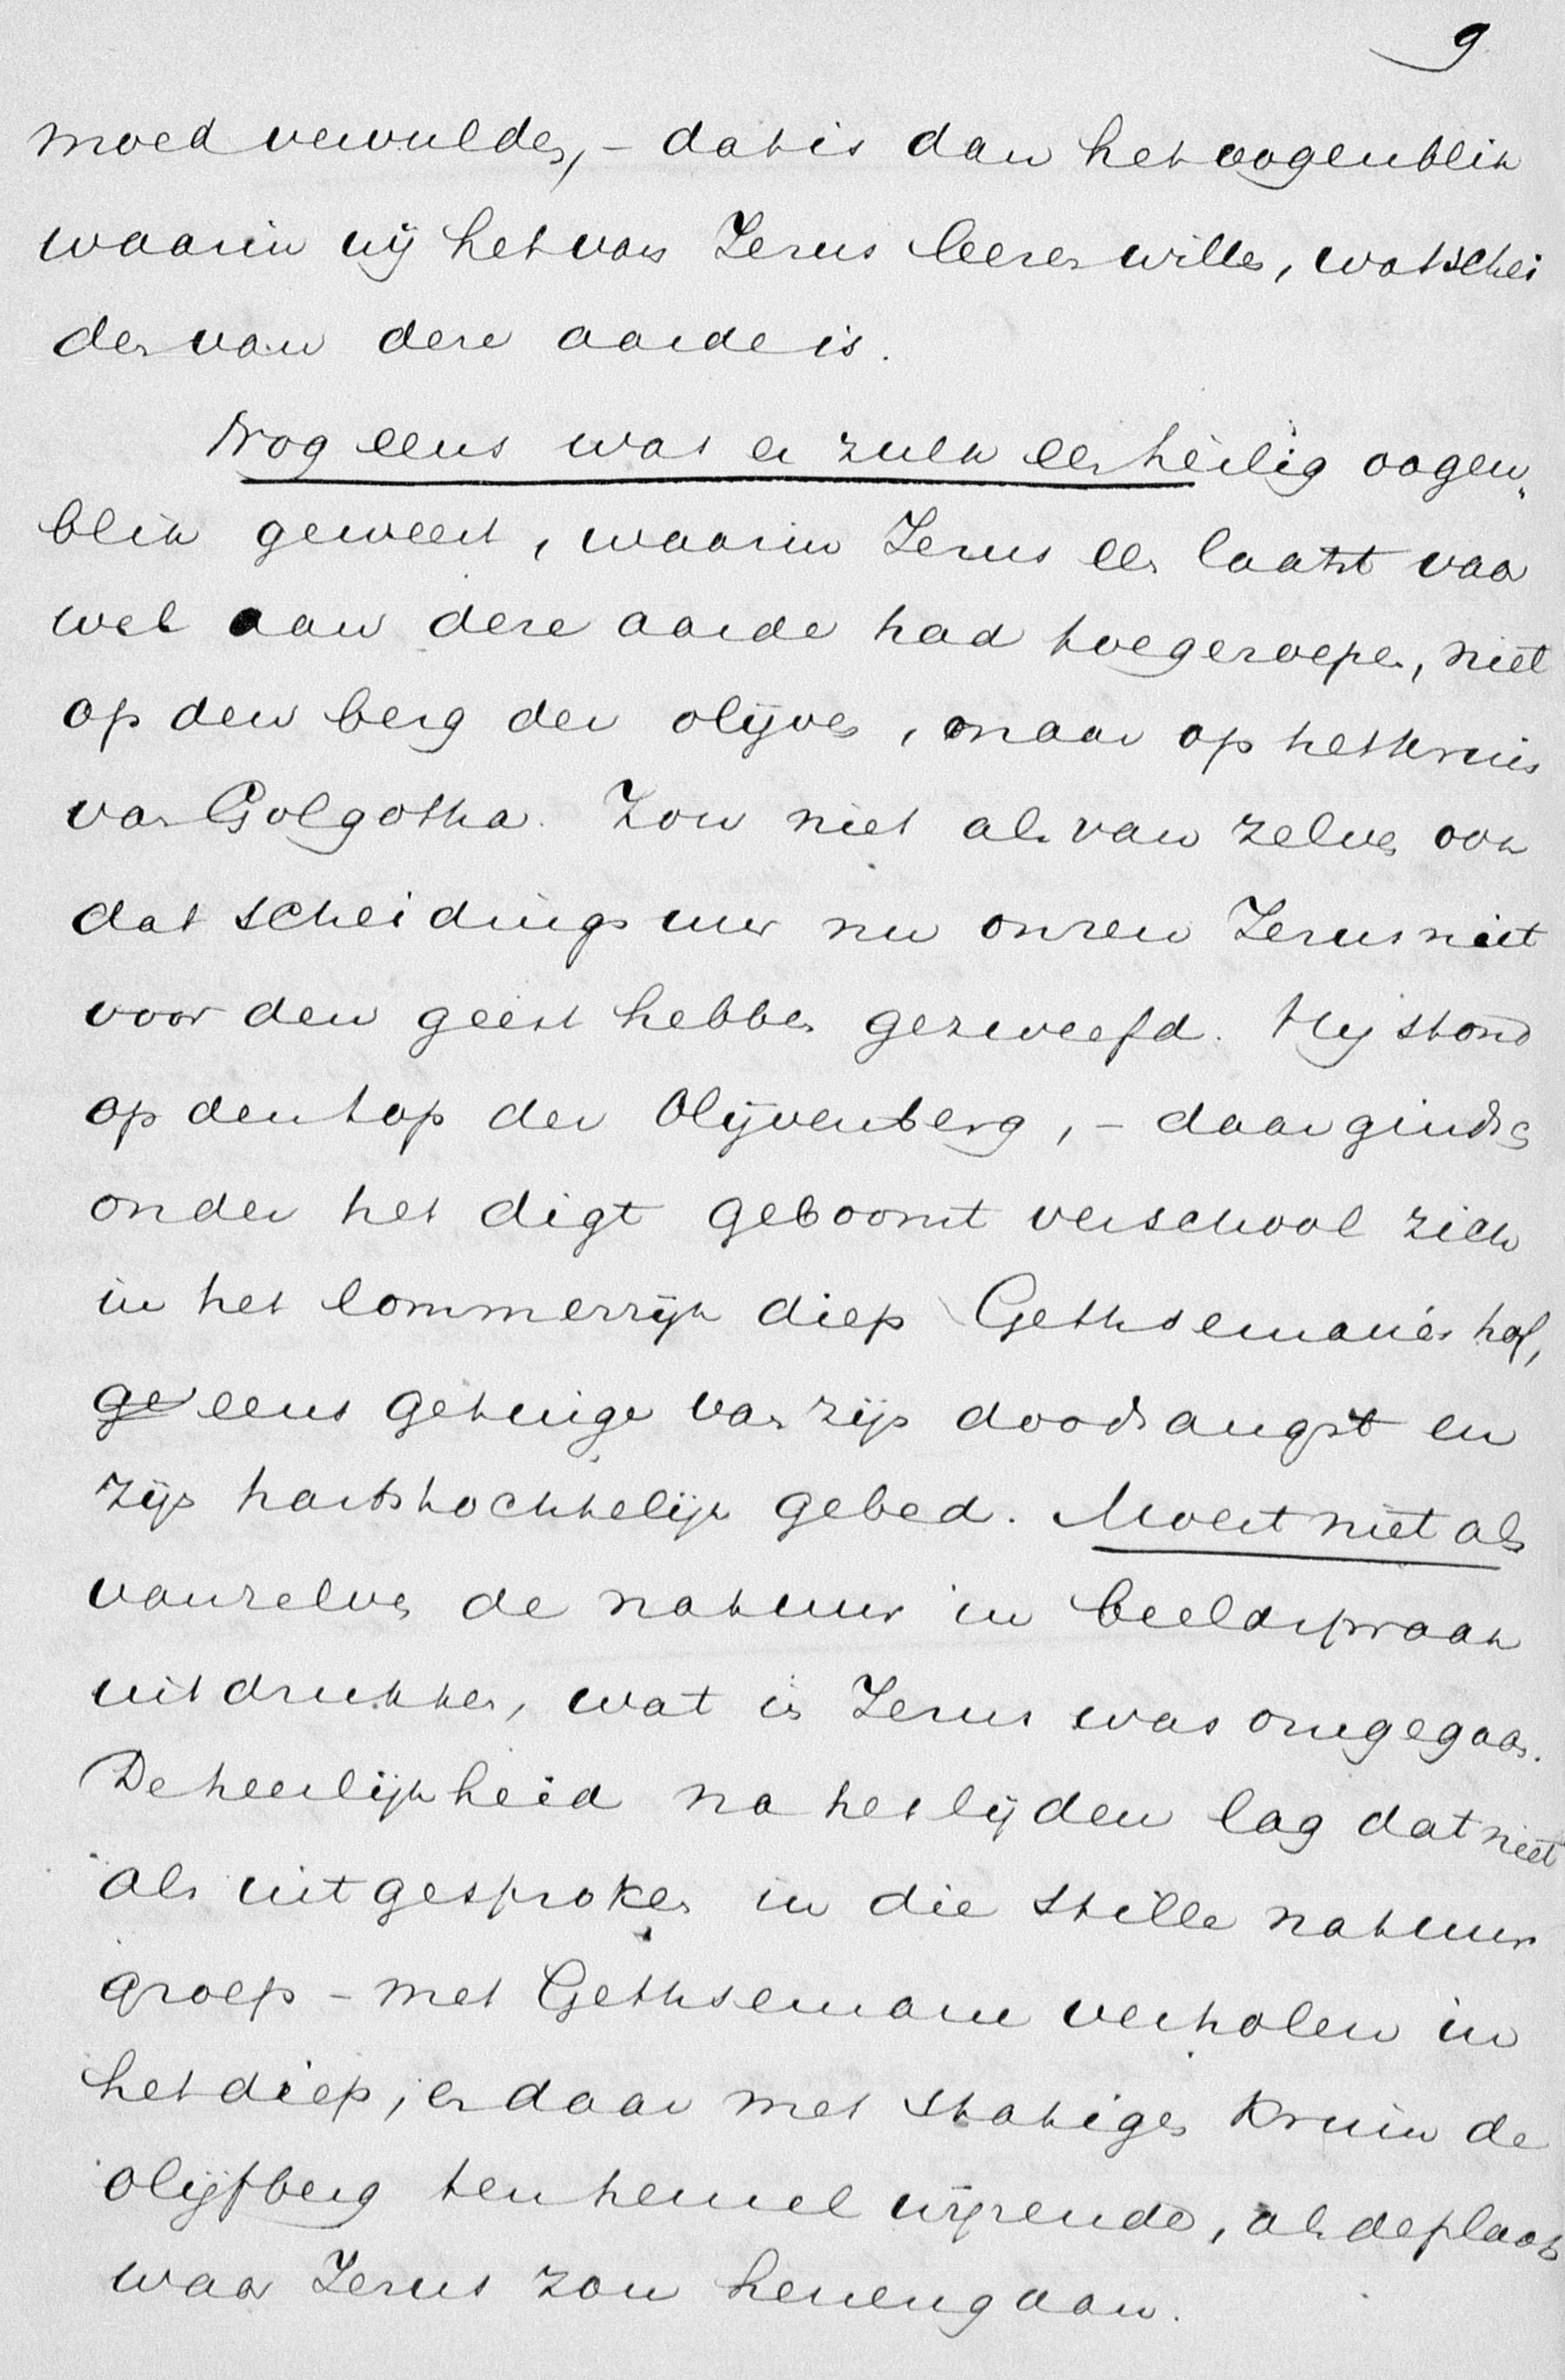 9
moed vervulde, – dat is dan het oogenblik
waarin wij het van Jezus leeren willen, wat schei
den van deze aarde is.
Nog eens was er zulk een heilig oogen„
blik geweest, waarin Jezus een laatst vaar
wel aan deze aarde had toegeroepen, niet
op den berg der olijven, maar op het kruis
van Golgotha. Zou niet als van zelve ook
dat scheidingsuur nu onzen Jezus niet
voor den geest hebben gezweefd. Hij stond
op den top der Olijvenberg, – daar ginds
onder het digt geboomt verschool zich
in het lommerrijk diep Gethsemané's hof,
ge eens getuige van zijn doodsangst en
zijn hartstochtelijk gebed. Moest niet als
vanzelve de natuur in beeldspraak
uitdrukken, wat in Jezus was omgegaan.
De heerlijkheid na het lijden lag dat niet
als uitgesproken in die stille natuur
groep – met Gethsemane verholen in
het diep, en daar met statigen kruin de
olijfberg ten hemel wijzende, als de plaats
waar Jezus zou henengaan.